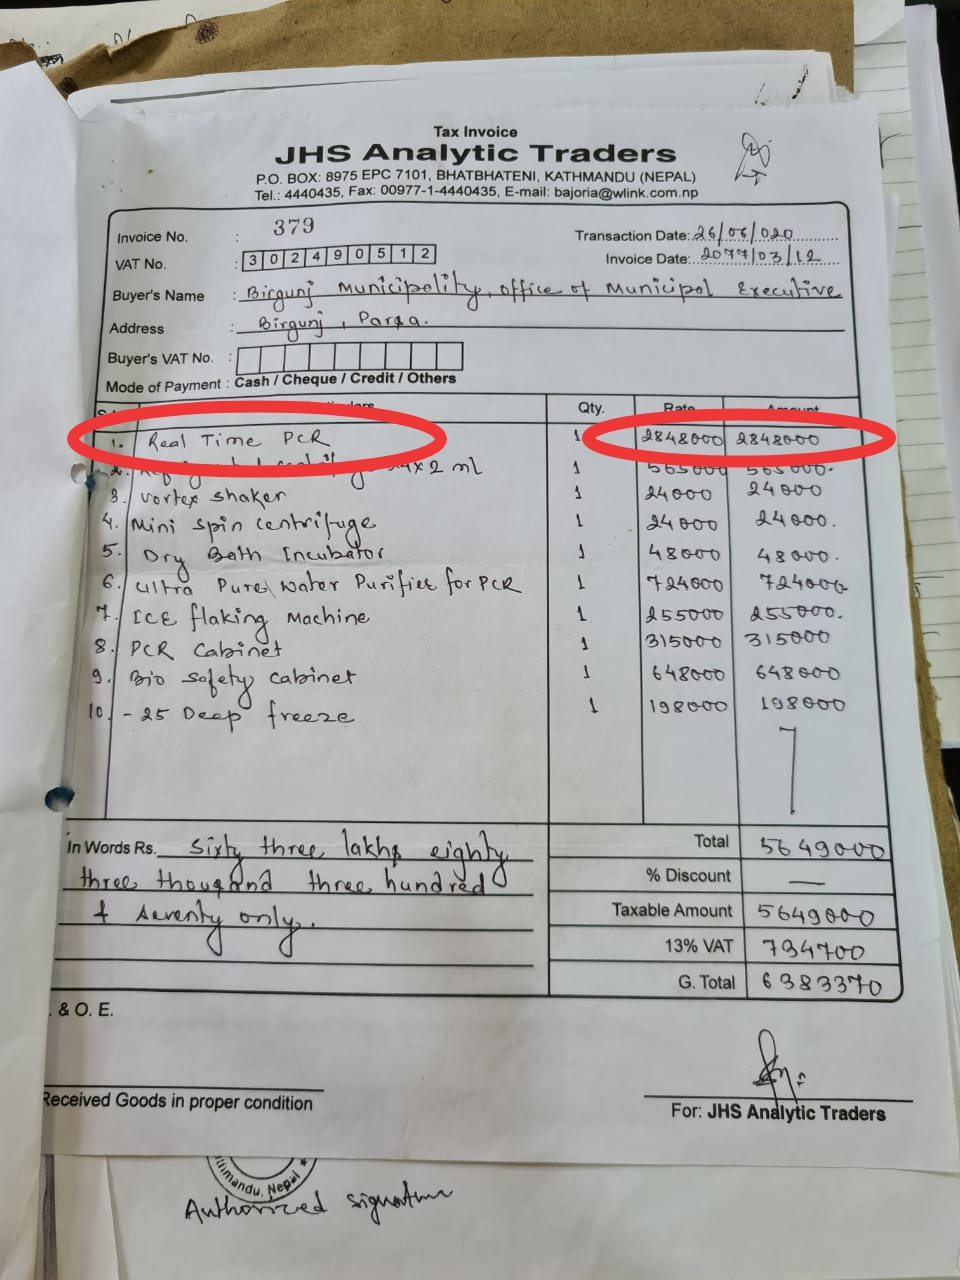 Tax Invoice
JHS Analytic Traders
P.O. BOX: 8975 EPC 7101, BHATBHATENI, KATHMANDU (NEPAL)
Tel.: 4440435, Fax: 00977-1-4440435, E-mail: bajoria@wlink.com.np
Invoice No. : 379
Transaction Date: 26/06/020
VAT No. : 302490512
Invoice Date: 2077/03/12
Buyer's Name : Birgunj Municipolity, office of Municipol Executive
Address : Birgunj, Parsa.
Buyer's VAT No. :
Mode of Payment : Cash / Cheque / Credit / Others
Qty. Rate Amount
1. Real Time PCR 1 2848000 2848000
2. 4x2 ml 1 565000 565000.
3. Vortex shaker 1 24000 24000
4. Mini spin centrifuge 1 24000 24000.
5. Dry Bath Incubator 1 48000 48000.
6. Ultra Pure Water Purifier for PCR 1 724000 724000
7. ICE flaking Machine 1 255000 255000.
8. PCR Cabinet 1 315000 315000
9. Bio Safety cabinet 1 648000 648000
10. -25 Deep freeze 1 198000 198000
In Words Rs. Sixty three lakhs eighty
three thousand three hundred
& seventy only.
Total 5649000
% Discount —
Taxable Amount 5649000
13% VAT 734700
G. Total 6383370
. & O. E.
Received Goods in proper condition
For: JHS Analytic Traders
Kathmandu, Nepal
Authorized signature